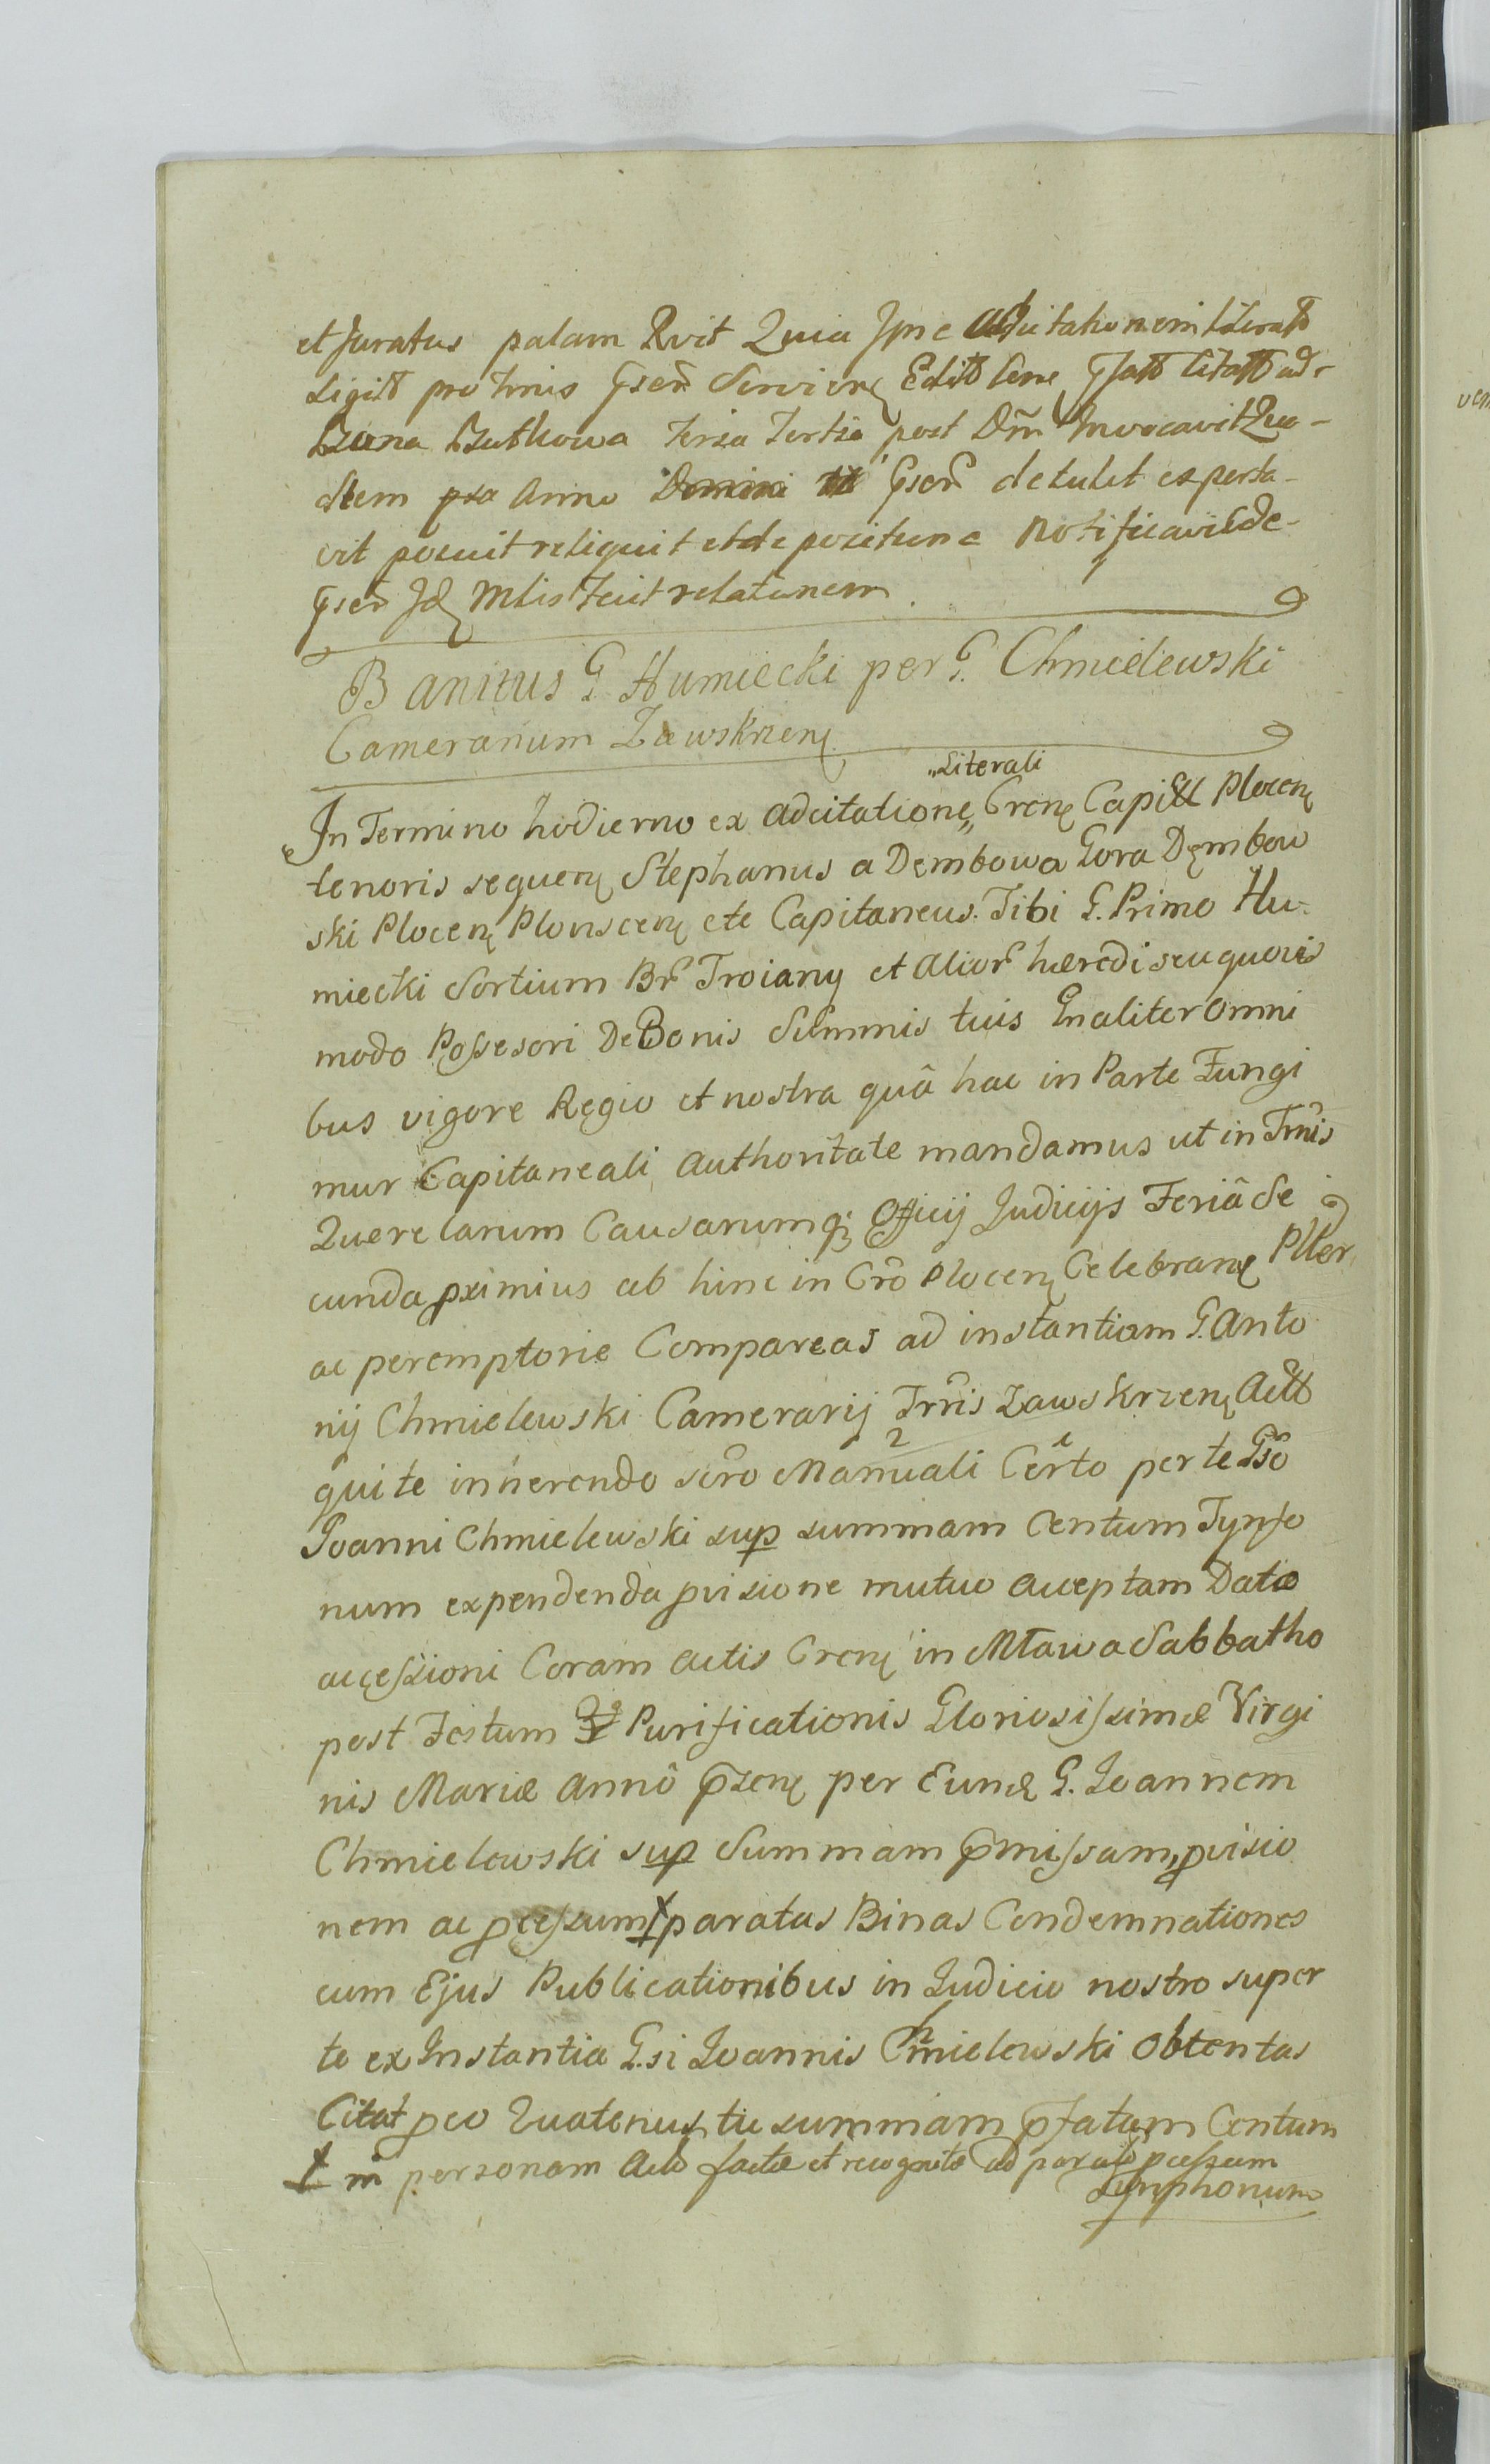 et Juratus palam Rvit Quia Ipse adcitationem literalt
Ligilt pro tmis Gserñ Servien Edilt Cene Gfatt Citatt ad
Bona Buthowa feria Tertia post Dm̃ Invocavit Qua-
dem pta Anno Gserñ detulit exporta-
vit posuit reliquit et de positione Notificavit de
Gserñ Jd Mlis fecit relationem
Banitus G Humiecki per G. Chmielewski
Camerarium Zawskrzen
In Termino hodierno ex adcitatione „Literali Cren Capill Plocen
tenoris sequen Stephanus a Dembowa Gora Dębow
ski Plocen Plonscen etc Capitaneus. Tibi G. Primo Hu-
miecki Sortium Br̃ Troiany et Alior̃ hæredi seu quovis
modo Possesori De Bonis Summis tuis Gnaliter omni
bus vigore Regio et nostra quâ hac in Parte Fungi
mur Capitaneali Authoritate mandamus ut in Trm̃is
Querelarum Causarumq; Officij Judicijs Feriâ Se
cunda pximius ab hinc in Crõ Plocen Celebran Plter
ac peremptorie Compareas ad instantiam G. Anto
nij Chmielewski Camerarij Trr̃is Zawskrzen Actt
qui te inhærendo scr̃o Manuali Cer̃to per te Gso
Joanni Chmielewski sup summam Centum Tynfo
num expendenda pvisione mutuo acceptam Datæ
accessioni Coram actis Cren in Mława Sabbatho
post Festum Purificationis Gloriosissimæ Virgi
nis Mariæ Annô p̃sen per Eund G. Joannem
Chmielewski sup Summam p̃missam, pvisio
nem ac pcessum ┼ paratas Binas Condemnationes
cum Ejus Publicationibus in Judicio nostro super
te ex Instantia G.si Joannis Chmielewski obtentas
Citat pco Quatenus tu summam p̃fatam Centum
┼ in personam Act factæ et recognitæ ad parat pcessum
Tynphonum